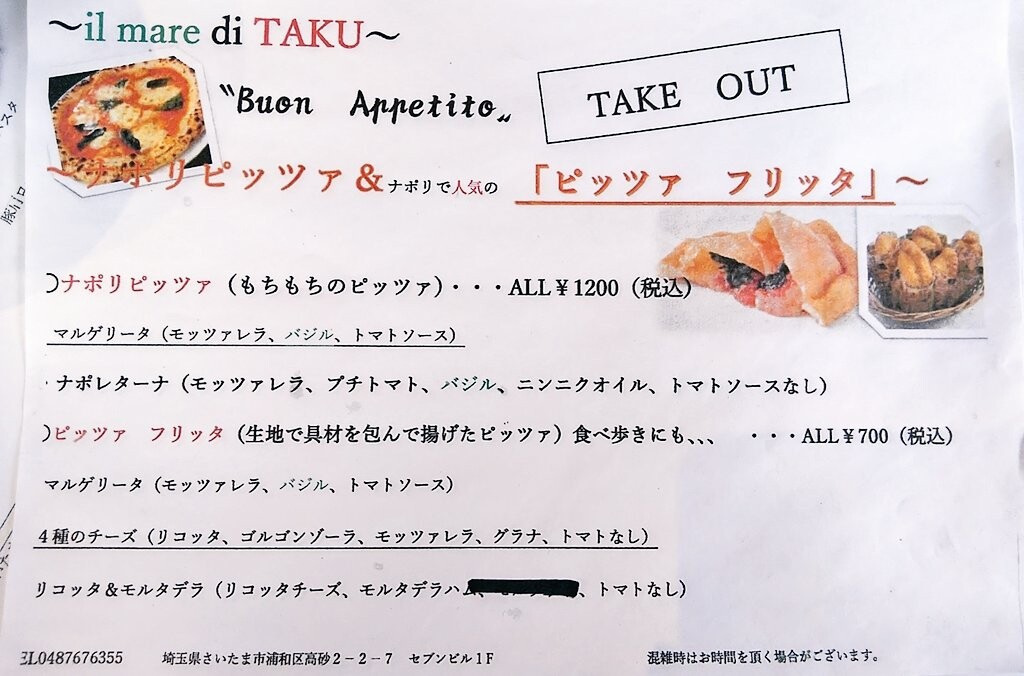 ～il mare di TAKU～
〝Buon Appetito〟
TAKE OUT
～ナポリピッツァ＆ナポリで人気の「ピッツァ フリッタ」～
ナポリピッツァ（もちもちのピッツァ）・・・ALL￥1200（税込）
マルゲリータ（モッツァレラ、バジル、トマトソース）
・ナポレターナ（モッツァレラ、プチトマト、バジル、ニンニクオイル、トマトソースなし）
ピッツァ フリッタ（生地で具材を包んで揚げたピッツァ）食べ歩きにも、、、 ・・・ALL￥700（税込）
マルゲリータ（モッツァレラ、バジル、トマトソース）
４種のチーズ（リコッタ、ゴルゴンゾーラ、モッツァレラ、グラナ、トマトなし）
リコッタ＆モルタデラ（リコッタチーズ、モルタデラハム、トマトなし）
EL0487676355 埼玉県さいたま市浦和区高砂２－２－７ セブンビル１F
混雑時はお時間を頂く場合がございます。